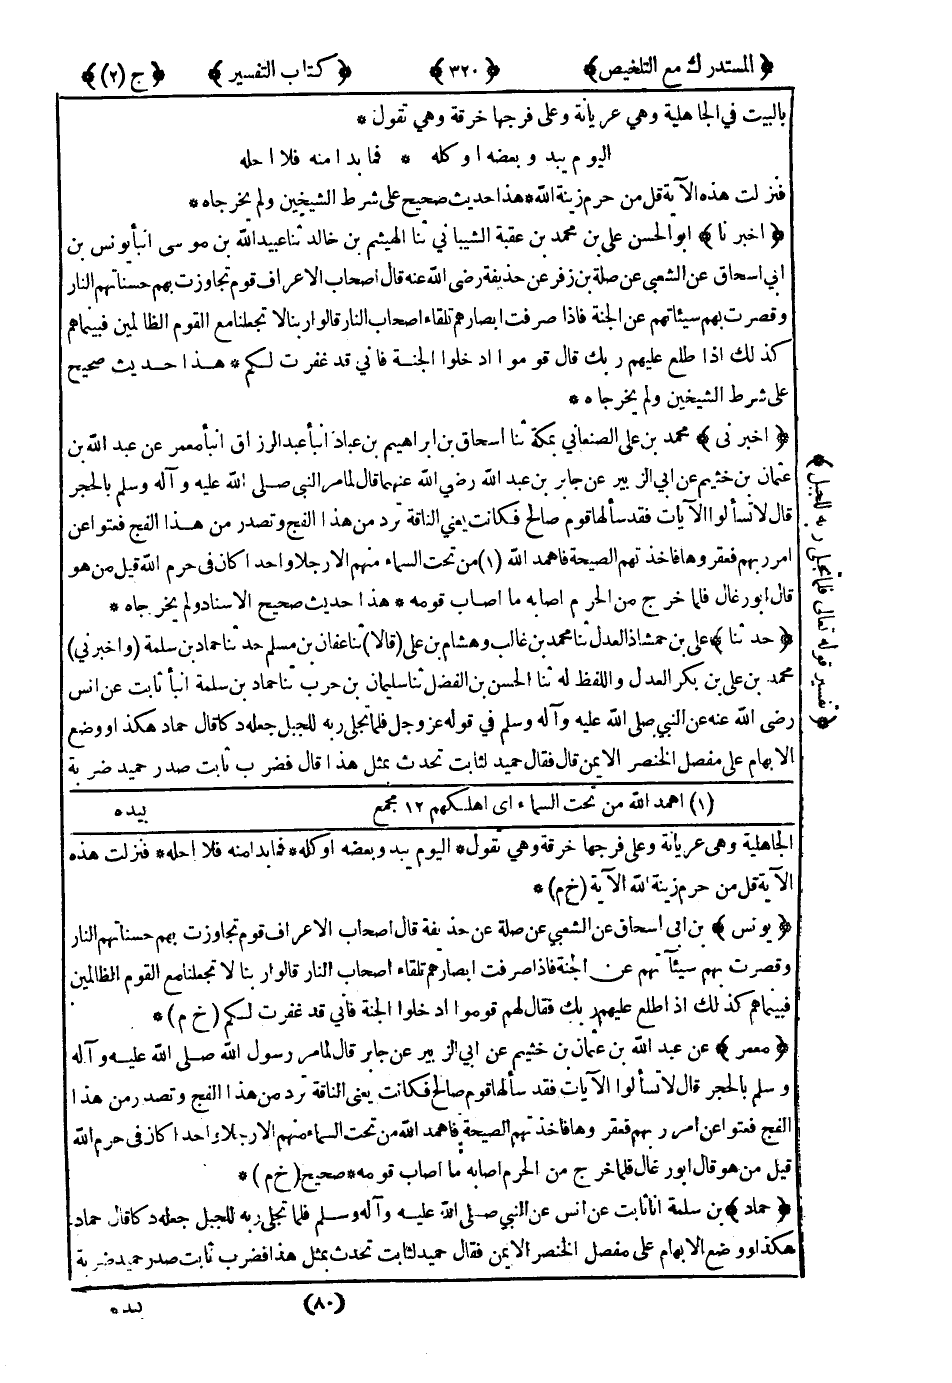 ﴿المستدرك مع التلخيص﴾ ﴿٣٢٠﴾ ﴿كتاب التفسير﴾ ﴿ج (٢)﴾
بالبيت في الجاهلية وهي عريانة وعلى فرجها خرقة وهي تقول *
اليوم يبدو بعضه او كله * فما بدا منه فلا احله
فنزلت هذه الآية قل من حرم زينة الله * هذا حديث صحيح على شرط الشيخين ولم يخرجاه *
﴿اخبرنا﴾ ابو الحسن علي بن محمد بن عقبة الشيباني ثنا الهيثم بن خالد ثنا عبيد الله بن موسى انبأ يونس بن
ابي اسحاق عن الشعبي عن صلة بن زفر عن حذيفة رضى الله عنه قال اصحاب الاعراف قوم تجاوزت بهم حسناتهم النار
وقصرت بهم سيئاتهم عن الجنة فاذا صرفت ابصارهم تلقاء اصحاب النار قالوا ربنا لا تجعلنا مع القوم الظالمين فبينما هم
كذلك اذا طلع عليهم ربك قال قوموا ادخلوا الجنة فاني قد غفرت لكم * هذا حديث صحيح
على شرط الشيخين ولم يخرجاه *
﴿اخبرنى﴾ محمد بن على الصنعاني بمكة ثنا اسحاق بن ابراهيم بن عباد انبأ عبد الرزاق انبأ معمر عن عبد الله بن
عثمان بن خثيم عن ابي الزبير عن جابر بن عبد الله رضي الله عنهما قال لما مر النبي صلى الله عليه وآله وسلم بالحجر
قال لا تسألوا الآيات فقد سألها قوم صالح فكانت يعني الناقة ترد من هذا الفج وتصدر من هذا الفج فعتوا عن
امر ربهم فعقروها فاخذتهم الصيحة فاهمد الله (١) من تحت السماء منهم الا رجلا واحدا كان في حرم الله قيل من هو
قال ابو رغال فلما خرج من الحرم اصابه ما اصاب قومه * هذا حديث صحيح الاسناد ولم يخرجاه *
﴿حدثنا﴾ علي بن حمشاذ العدل ثنا محمد بن غالب وهشام بن على (قالا) ثنا عفان بن مسلم حدثنا حماد بن سلمة (واخبرني)
محمد بن علي بن بكر العدل واللفظ له ثنا الحسن بن الفضل ثنا سليمان بن حرب ثنا حماد بن سلمة انبأ ثابت عن انس
رضى الله عنه عن النبي صلى الله عليه وآله وسلم في قوله عز وجل فلما تجلى ربه للجبل جعله دكا قال حماد هكذا ووضع
الابهام على مفصل الخنصر الايمن قال فقال حميد لثابت تحدث بمثل هذا قال فضرب ثابت صدر حميد ضربة
(١) اهمد الله من تحت السماء اى اهلكهم ١٢ مجمع
بيده
الجاهلية وهى عريانة وعلى فرجها خرقة وهي تقول * اليوم يبدو بعضه او كله * فما بدا منه فلا احله * فنزلت هذه
الآية قل من حرم زينة الله الآية (خ م) *
﴿يونس﴾ بن ابي اسحاق عن الشعبي عن صلة عن حذيفة قال اصحاب الاعراف قوم تجاوزت بهم حسناتهم النار
وقصرت بهم سيآتهم عن الجنة فاذا صرفت ابصارهم تلقاء اصحاب النار قالوا ربنا لا تجعلنا مع القوم الظالمين
فبينما هم كذلك اذ اطلع عليهم ربك فقال لهم قوموا ادخلوا الجنة فأني قد غفرت لكم (خ م) *
﴿معمر﴾ عن عبد الله بن عثمان بن خثيم عن ابي الزبير عن جابر قال لما مر رسول الله صلى الله عليه وآله
وسلم بالحجر قال لا تسألوا الآيات فقد سألها قوم صالح فكانت يعنى الناقة ترد من هذا الفج وتصدر من هذا
الفج فعتوا عن امر ربهم فعقروها فاخذتهم الصيحة فاهمد الله من تحت السماء منهم الا رجلا واحدا كان في حرم الله
قيل من هو قال ابو رغال فلما خرج من الحرم اصابه ما اصاب قومه * صحيح (خ م) *
﴿حماد﴾ بن سلمة انا ثابت عن انس عن النبي صلى الله عليه وآله وسلم فلما تجلى ربه للجبل جعله دكا قال حماد
هكذا ووضع الابهام على مفصل الخنصر الايمن فقال حميد لثابت تحدث بمثل هذا فضرب ثابت صدر حميد ضربة
(٨٠)
بيده
﴿تفسير قوله تعالى فلما تجلى ربه للجبل﴾